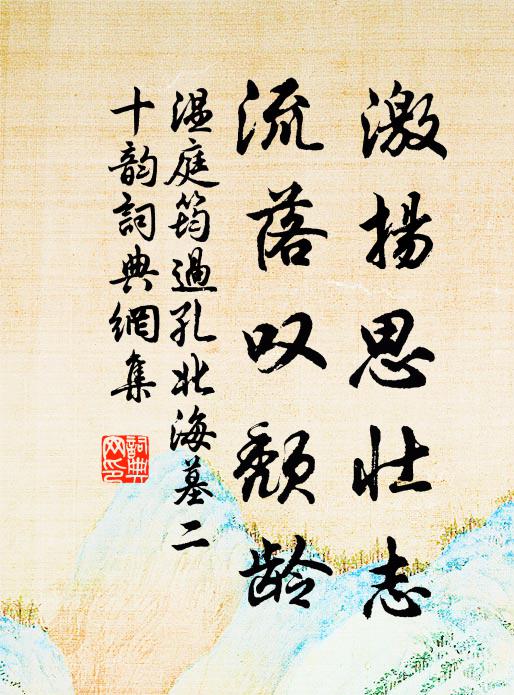 激揚思壮志
流落叹頹龄
温庭筠過孔北海墓二
十韵詞典網集
詞典
网印